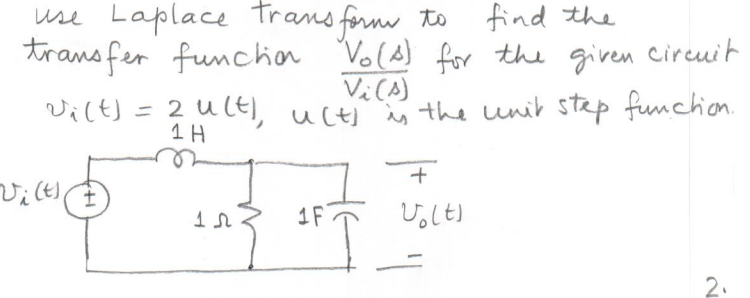 use Laplace transform to find the
transfer function Vo(s)/Vi(s) for the given circuit
vi(t) = 2 u(t), u(t) is the unit step function.
1H
vi(t)
±
1Ω
1F
+
vo(t)
−
2.